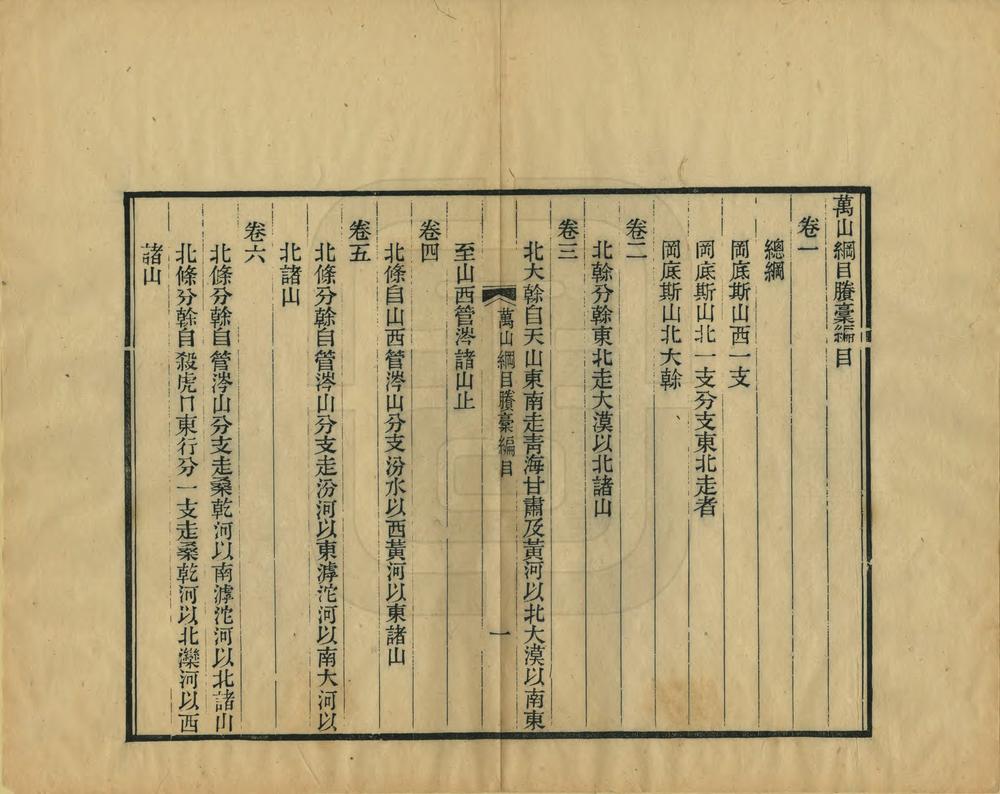 萬山綱目賸稾編目
卷一
總綱
岡底斯山西一支
岡底斯山北一支分支東北走者
岡底斯山北大榦
卷二
北榦分榦東北走大漠以北諸山
卷三
北大榦自天山東南走青海甘肅及黃河以北大漠以南東
萬山綱目賸稾編目
一
至山西管涔諸山止
卷四
北條自山西管涔山分支汾水以西黃河以東諸山
卷五
北條分榦自管涔山分支走汾河以東滹沱河以南大河以
北諸山
卷六
北條分榦自管涔山分支走桑乾河以南滹沱河以北諸山
北條分榦自殺虎口東行分一支走桑乾河以北灤河以西
諸山